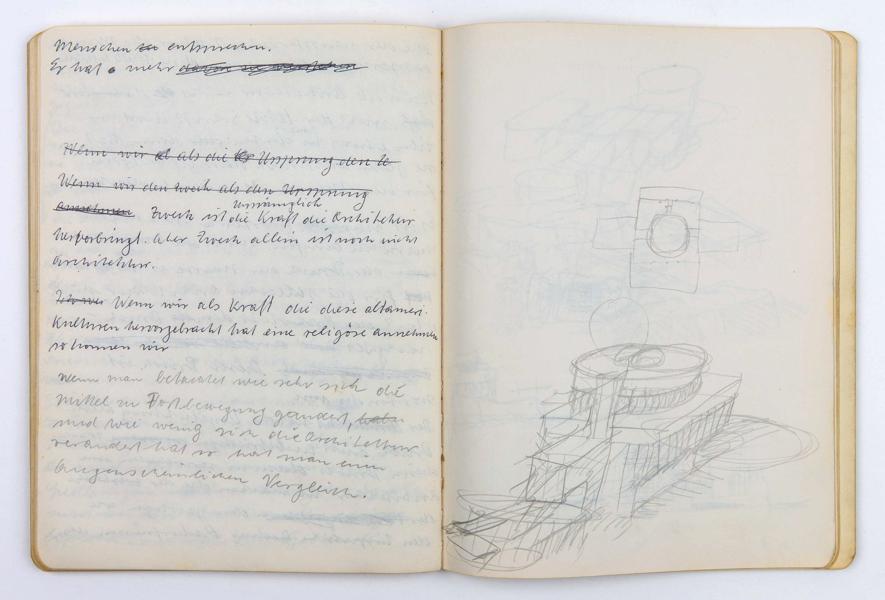 Menschen entsprechen.
Er hat mehr
Wenn wir als die Ursprung den
Wenn wir den Zweck als den Ursprung
annehmen. Zweck ist ursprünglich die Kraft die Architektur
hervorbringt. aber Zweck allein ist noch nicht
Architektur.
Wenn wir als Kraft die diese altameri.
Kulturen hervorgebracht hat eine religiöse annehmen
so können wir
Wenn man betrachtet wie sehr sich die
Mittel zu Fortbewegung geändert
und wie wenig sich die Architektur
verändert hat so hat man einen
Augenscheinlichen Vergleich.